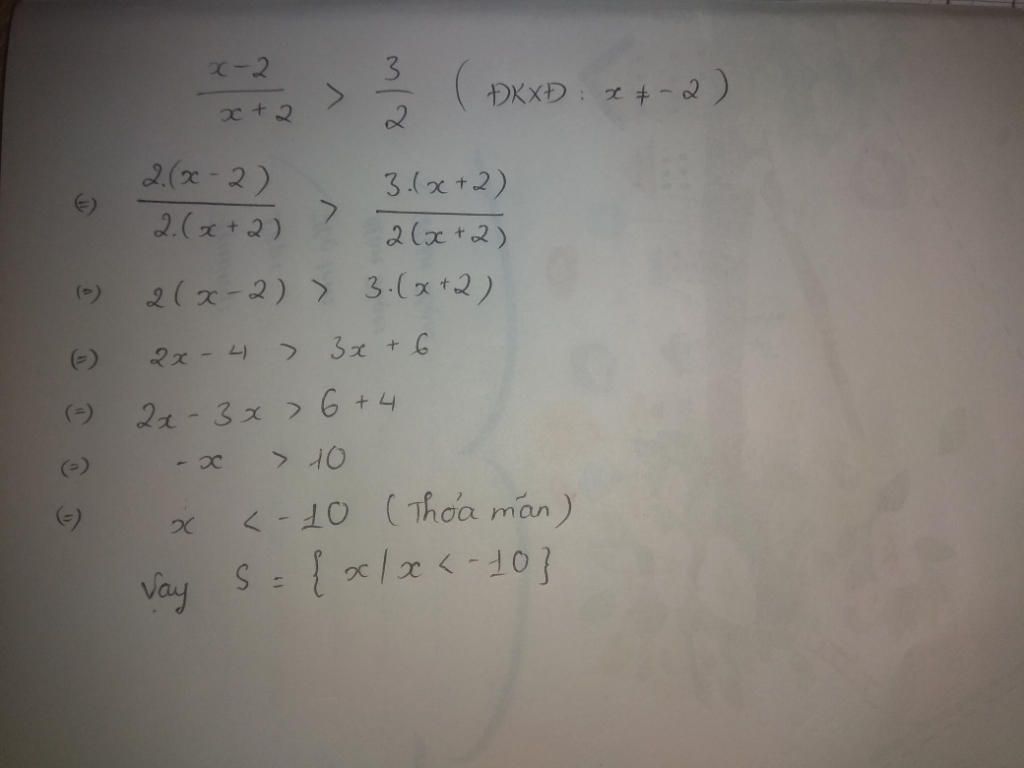 x-2 / x+2 > 3/2 ( ĐKXĐ : x ≠ -2 )
(=) 2.(x-2) / 2.(x+2) > 3.(x+2) / 2(x+2)
(=) 2(x-2) > 3.(x+2)
(=) 2x - 4 > 3x + 6
(=) 2x - 3x > 6 + 4
(=) -x > 10
(=) x < -10 (Thỏa mãn)
Vạy S = { x/x < -10}